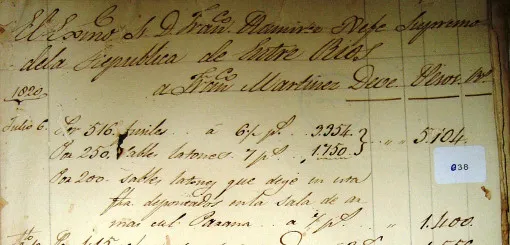 El Exmo. S. D. Fran.co Ramirez Xefe Supremo
de la Republica de Entre Rios
a Fran.co Martinez Deve Pesos Rs.
1820
Julio 6. Por 516 fusiles .. á 6½ ps. 3354. } " " 5.104.
Por 250. sables latones 7 ps. 1.750 }
Por 200 sables latones que dejé en una
depocitados en la sala de ar-
mas en el Parana .. a 7 ps. .. " 1.400.
038